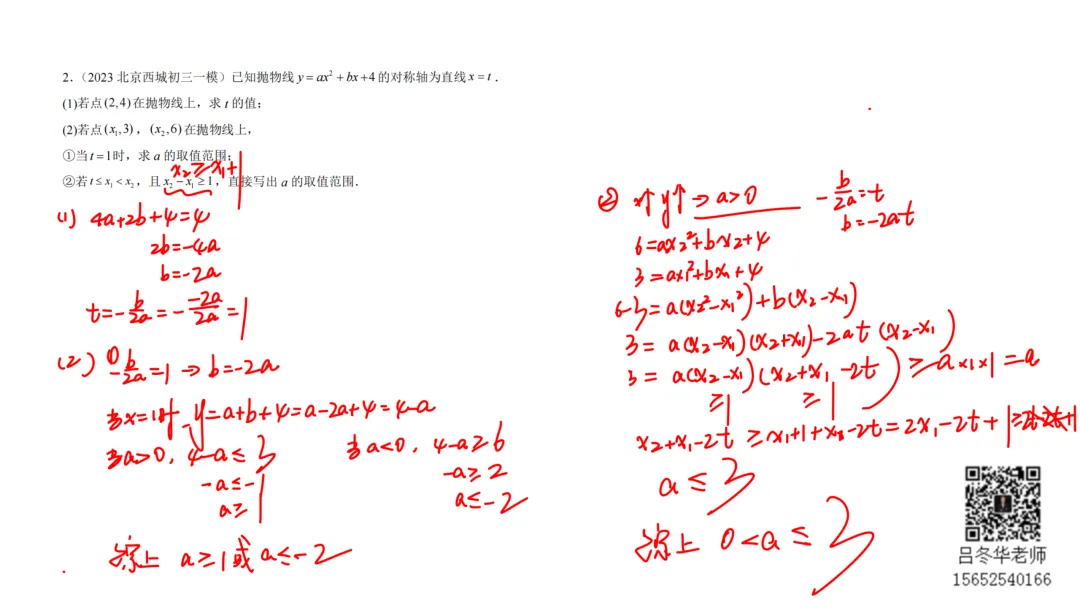 2.（2023 北京西城初三一模）已知抛物线 y = ax² + bx + 4 的对称轴为直线 x = t .
(1)若点 (2,4) 在抛物线上，求 t 的值；
(2)若点 (x₁,3)，(x₂,6) 在抛物线上，
①当 t = 1 时，求 a 的取值范围；
x₂≥x₁+1
②若 t ≤ x₁ < x₂，且 x₂ − x₁ ≥ 1，直接写出 a 的取值范围．
(1) 4a+2b+4=4
2b=-4a
b=-2a
t=-b/2a=-(-2a)/2a=1
(2) ① -b/2a=1→b=-2a
当x=1时，y=a+b+4=a-2a+4=4-a
当a>0, 4-a≤3
-a≤-1
a≥1
当a<0, 4-a≥6
-a≥2
a≤-2
综上 a≥1或a≤-2
② x↑ y↑→a>0
-b/2a=t
b=-2at
6=ax₂²+bx₂+4
3=ax₁²+bx₁+4
6-3=a(x₂²-x₁²)+b(x₂-x₁)
3=a(x₂-x₁)(x₂+x₁)-2at(x₂-x₁)
3=a(x₂-x₁)(x₂+x₁-2t)≥a×1×1=a
≥1 ≥1
x₂+x₁-2t≥x₁+1+x₁-2t=2x₁-2t+1≥2t-2t+1
a≤3
综上 0<a≤3
吕冬华老师
15652540166